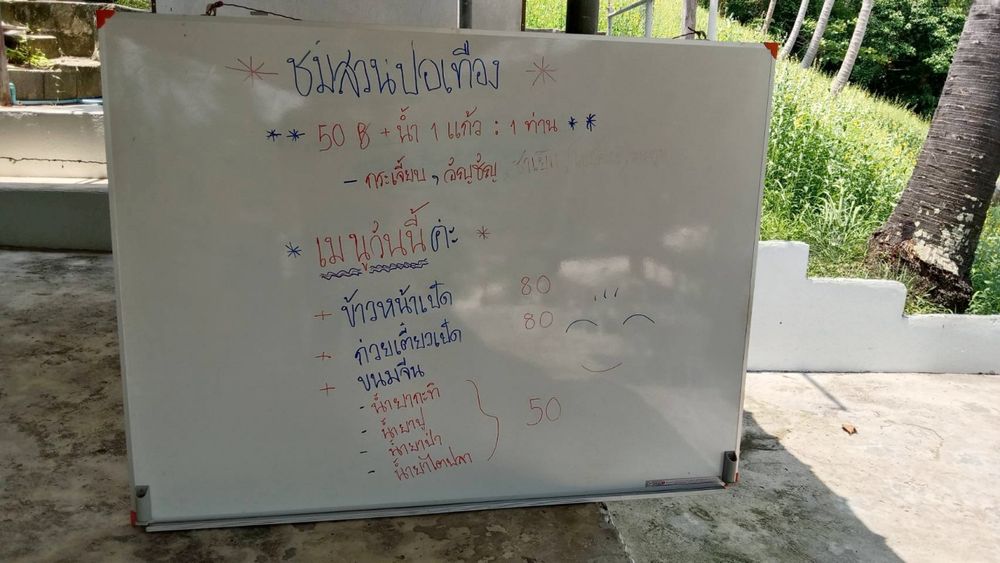 ชมสวนปอเทือง
50 ฿ + น้ำ 1 แก้ว : 1 ท่าน
- กระเจี๊ยบ, อัญชัญ
เมนูวันนี้ค่ะ
+ ข้าวหน้าเป็ด 80
+ ก๋วยเตี๋ยวเป็ด 80
+ ขนมจีน
- น้ำยากะทิ
- น้ำยาปู 50
- น้ำยาป่า
- น้ำยาไตปลา